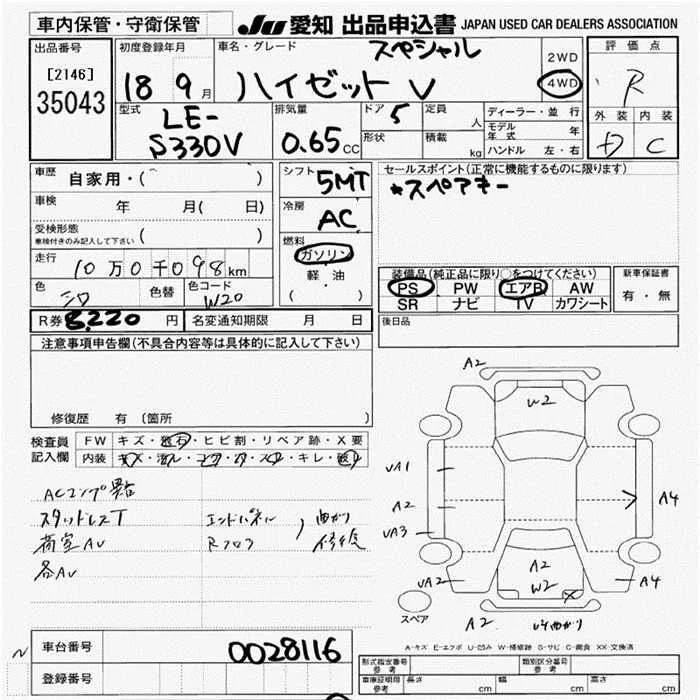 車内保管・守衛保管
JU 愛知 出品申込書 JAPAN USED CAR DEALERS ASSOCIATION
出品番号
[2146]
35043
初度登録年月
18 9月
車名・グレード
スペシャル
ハイゼット V
2WD
4WD
評価点
R
外装 内装
D C
型式
LE-
S330V
排気量
0.65 CC
ドア 5
形状
定員 人
積載 kg
ディーラー・並行
モデル年式 年
ハンドル 左・右
車歴
自家用・( )
車検 年 月( 日)
受検形態
車検付きのみ記入して下さい ( )
走行 10万0千098km
色 シロ 色替 色コード W20
シフト 5MT
冷房 AC
燃料
ガソリン
軽・油
( ・ )
セールスポイント(正常に機能するものに限ります)
*スペアキー
装備品(純正品に限り○をつけてください)
PS PW エアB AW
SR ナビ TV カワシート
新車保証書
有・無
R券 8,220 円 名変通知期限 月 日
後日品
注意事項申告欄(不具合内容等は具体的に記入して下さい)
修復歴 有 〔箇所
検査員
記入欄
FW キズ・飛石・ヒビ割・リペア跡・X要
内装 キズ・汚レ・コゲ・穴・スレ・キレ・破レ
ACコンプ異音
スタッドレスT
荷室AU
各AU
エンドパネル
Rフロア
) 曲がり
修繕
A2
W2
UA1
A2
UA3
UA2
A4
A4
A2
W2
X
A2
曲がり
スペア
A-キズ E-エクボ U-凹み W-補修跡 S-サビ C-腐食 XX-交換済
N
車台番号 0028116
登録番号
型式指定番号 参考
類別区分番号 参考
車庫証明用 参考 長さ cm 幅 cm 高さ cm